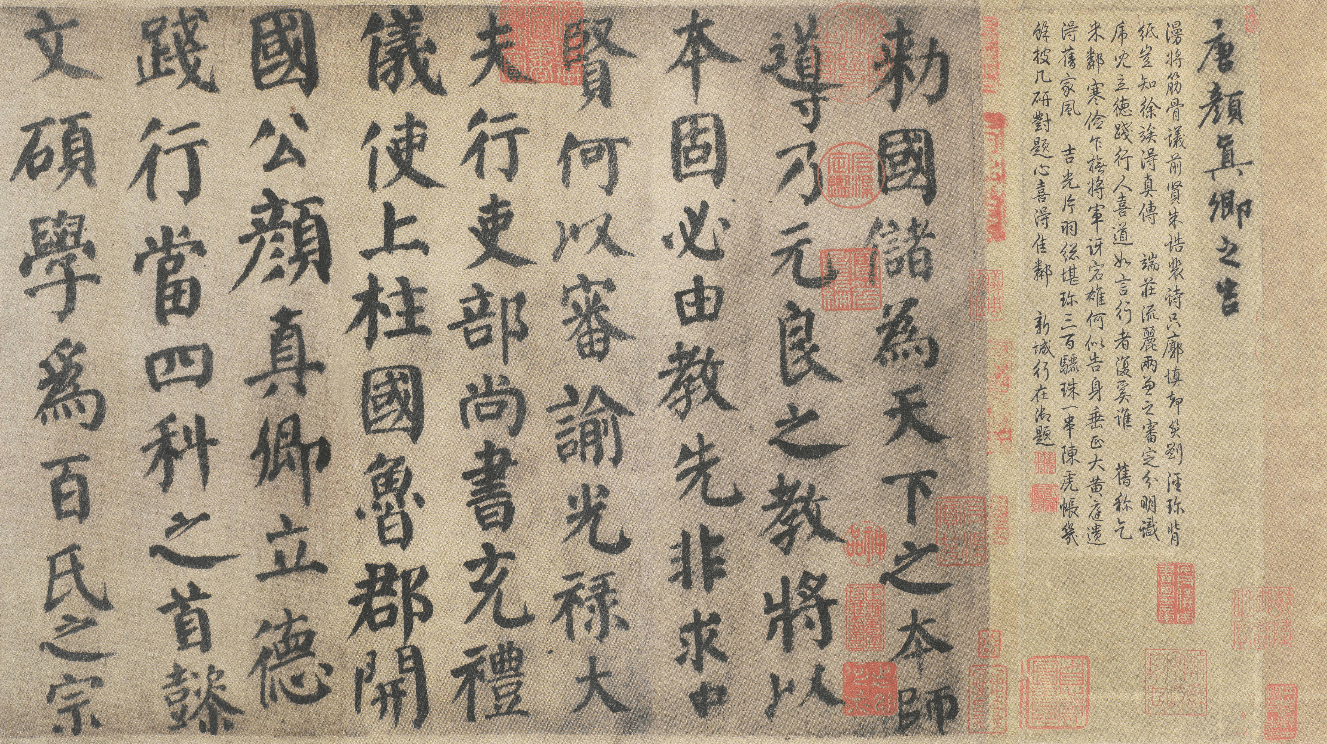 唐顏真卿之告
漫將筋骨議前賢朱梏裴诗只廓填却笑劉涇珎背
紙豈知徐族得真傳　端莊流麗兩兼之審定分明識
席况立德踐行人喜道如言行者復奚谁　舊称乞
米鄰寒俭乍撫將軍讶宕雄何似告身垂正大黄庭遗
得舊家風　吉光片羽総堪珎三百驪珠一串陳虎帳幾
餘披几研對題心喜得佳鄰　新城行在御題
勅國儲為天下之本師
導乃元良之教將以
本固必由教先非求中
賢何以審諭光祿大
夫行吏部尚書充禮
儀使上柱國魯郡開
國公顏真卿立德
踐行當四科之首懿
文碩學為百氏之宗